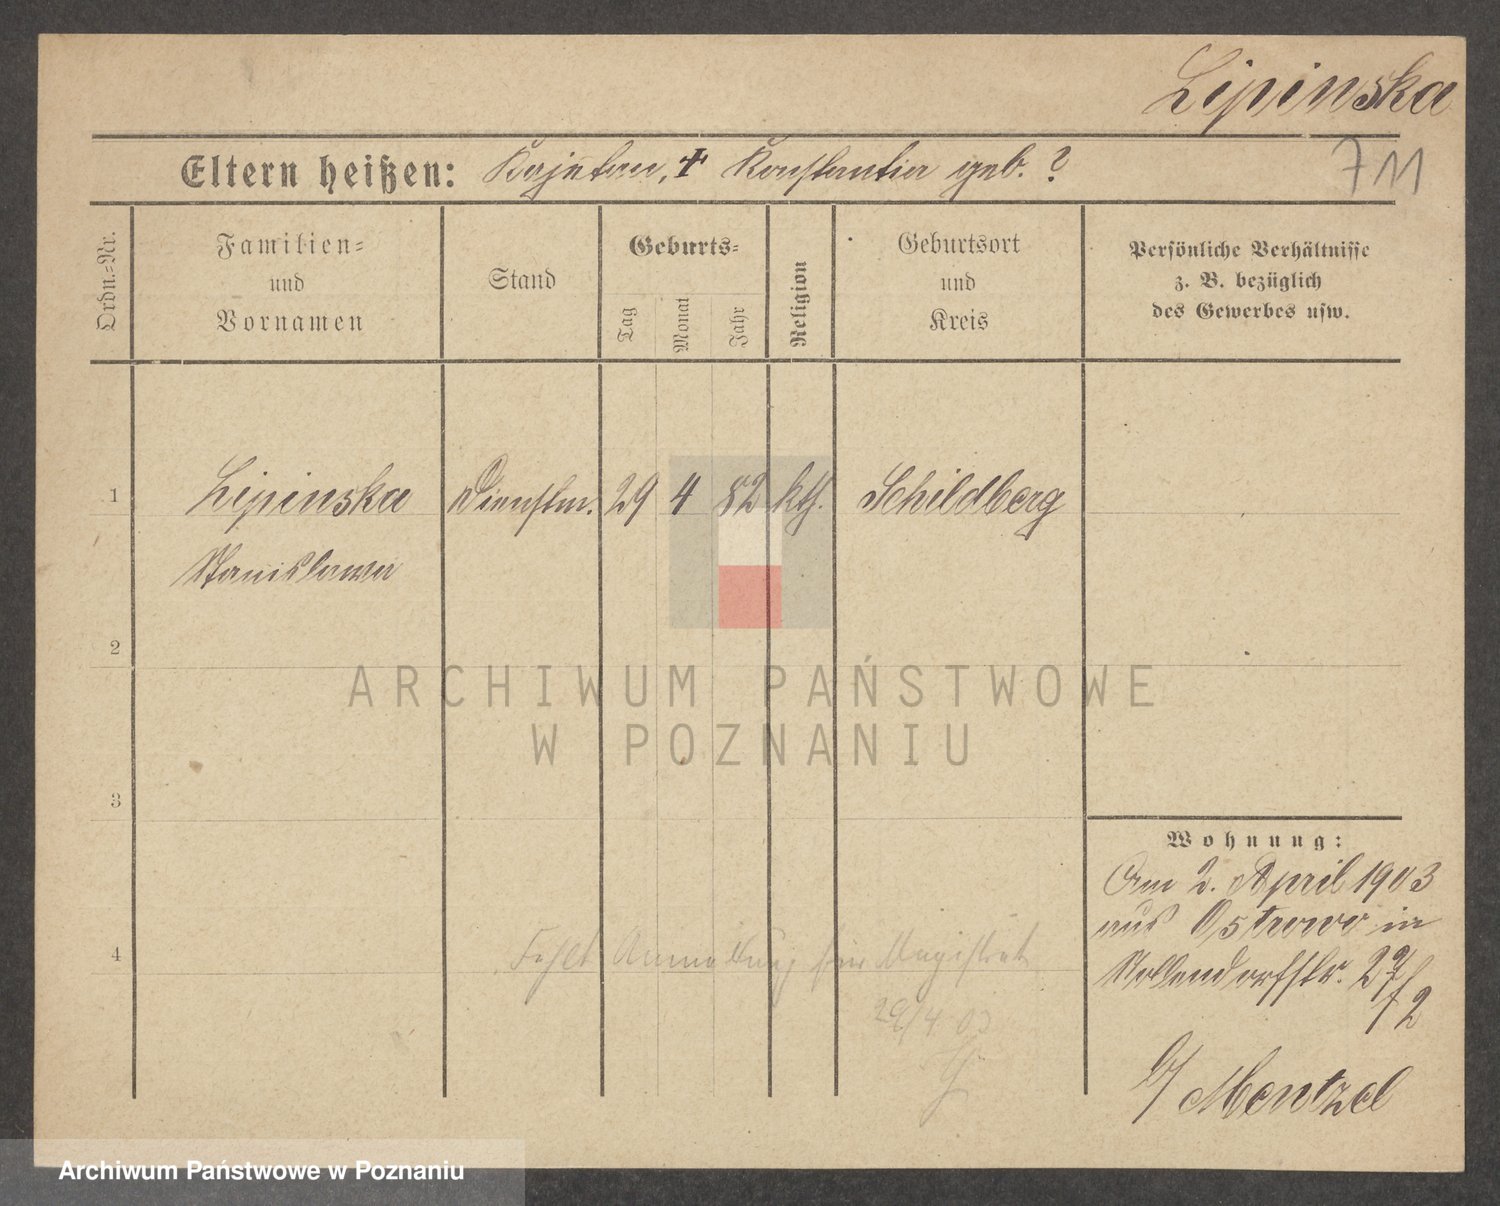 Lipinska
Eltern heißen: Kajetan, + Konstantia geb. ?
711
Ordn.=Nr.
Familien=
und
Vornamen
Stand
Geburts=
Tag
Monat
Jahr
Religion
Geburtsort
und
Kreis
Persönliche Verhältnisse
z. B. bezüglich
des Gewerbes usw.
1 Lipinska Dienstm. 29 4 82 kth. Schildberg
Stanislawa
2
ARCHIWUM PAŃSTWOWE
W POZNANIU
3
Wohnung:
Am 2. April 1903
aus Ostrowo in
Nollendorfstr. 27/2
4
Fehlt Anmeldung für Magistrat
29/4 03
b/ Mentzel
Archiwum Państwowe w Poznaniu